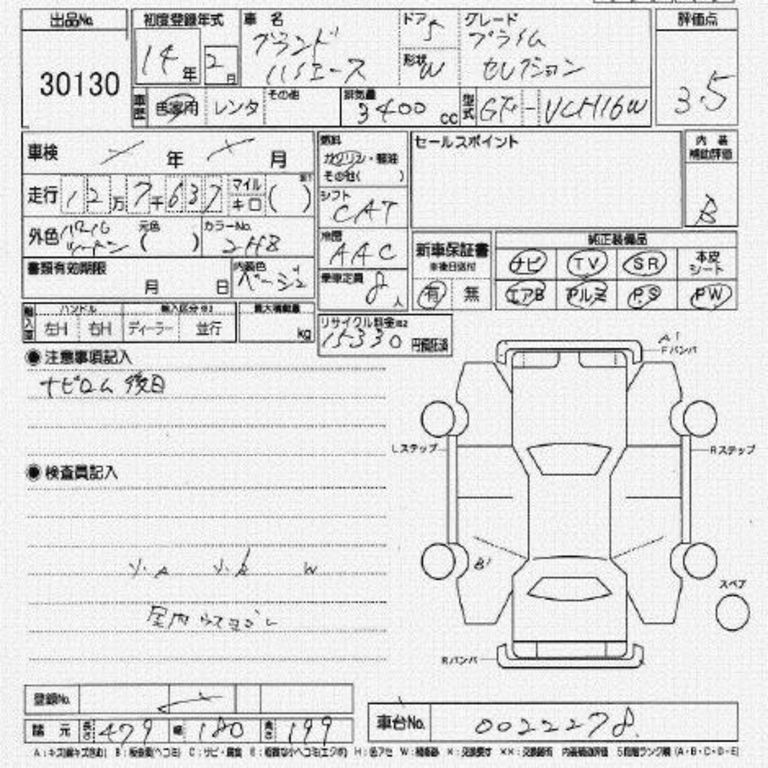 出品No. 初度登録年式 車 名 ドア 5 グレード 評価点
30130 14年 2月 グランド ハイエース 形状 W プライム セレクション 3.5
車歴 自家用 レンタ その他 排気量 3400 cc 型式 GF - VCH16W
車検 年 月 燃料 ガソリン・軽油 その他( ) セールスポイント 内装補助評価
走行 12万7千637 マイル キロ ( ) シフト CAT B
外色 パール ツートン 元色 ( ) カラーNo. 2H8 冷房 AAC 新車保証書 ※後日送付 純正装備品
ナビ TV SR 本皮シート
書類有効期限 月 日 内装色 ベージュ 乗車定員 8人 有 無 エアB アルミ PS PW
輸入車 ハンドル 左H 右H 輸入区分 ディーラー 並行 最大積載量 kg リサイクル料金 15330 円預託済
◉ 注意事項記入
ナビロム 後日
A1
Fバンパ
Lステップ
Rステップ
◉ 検査員記入
小A 小B W
B1
室内ウスヨゴレ
スペア
Rバンパ
登録No.
諸元 長さ 479 幅 180 高さ 199 車台No. 0022278